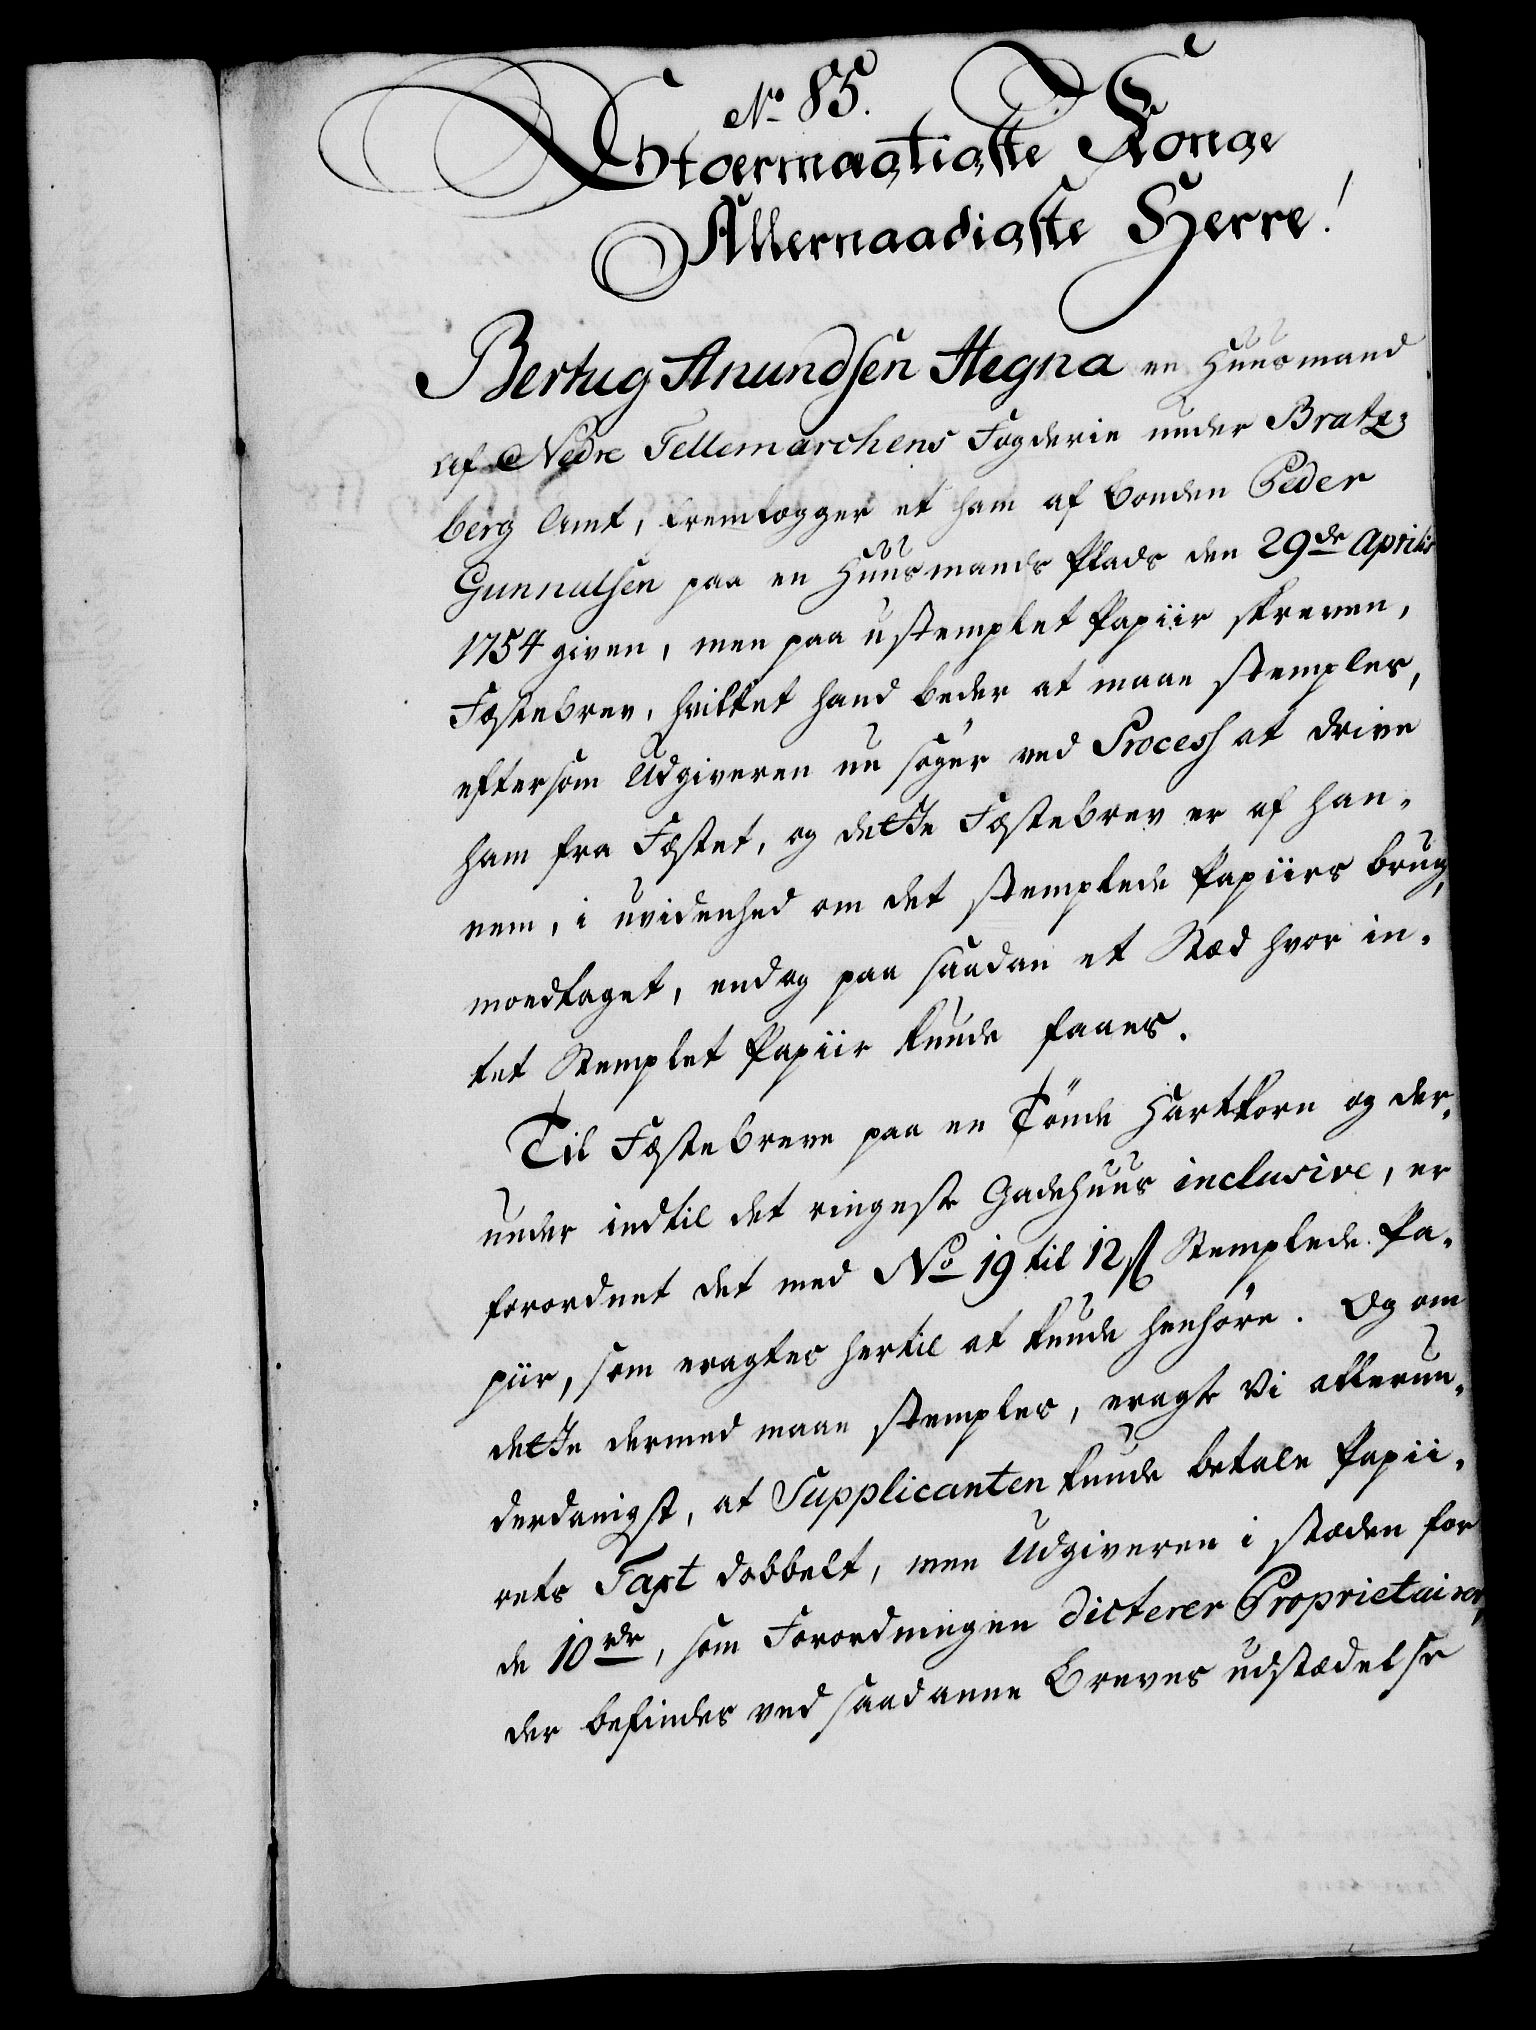 No 85.
Stoermægtigste Konge
Allernaadigste Herre!
Bertug Anundsen Hegna en Huusmand
af Nedre Tellemarchens Fogderie under Bratz-
berg Amt, fremlægger et ham af bonden Peder
Gunnulsen paa en Huusmands Plads den 29de Aprilis
1754 given, men paa ustemplet Papiir skreven,
Fæstebrev, hvilket hand beder at maae stemples,
eftersom Udgiveren nu søger ved Process at drive
ham fra Fæstet, og dette Fæstebrev er af han-
nem, i uvidenhed om det stemplede Papiirs brug,
modtaget, endog paa saadan et Stæd hvor in-
tet Stemplet Papiir kunde faaes.
Til Fæstebreve paa en Tönde Hartkorn og der-
under indtil det ringeste Gadehuus inclusive, er
forordnet det med No 19 til 12 ß Stemplede Pa-
piir, som eragtes hertil at kunde henhöre. Og om
dette dermed maae stemples, eragte Vi allerun-
derdanigst, at Supplicanten kunde betale Papii-
rets Taxt dobbelt, men Udgiveren i stæden for
de 10 rdr, som Forordningen dicterer Proprietairer,
der befindes ved saadanne Breves udstædelse